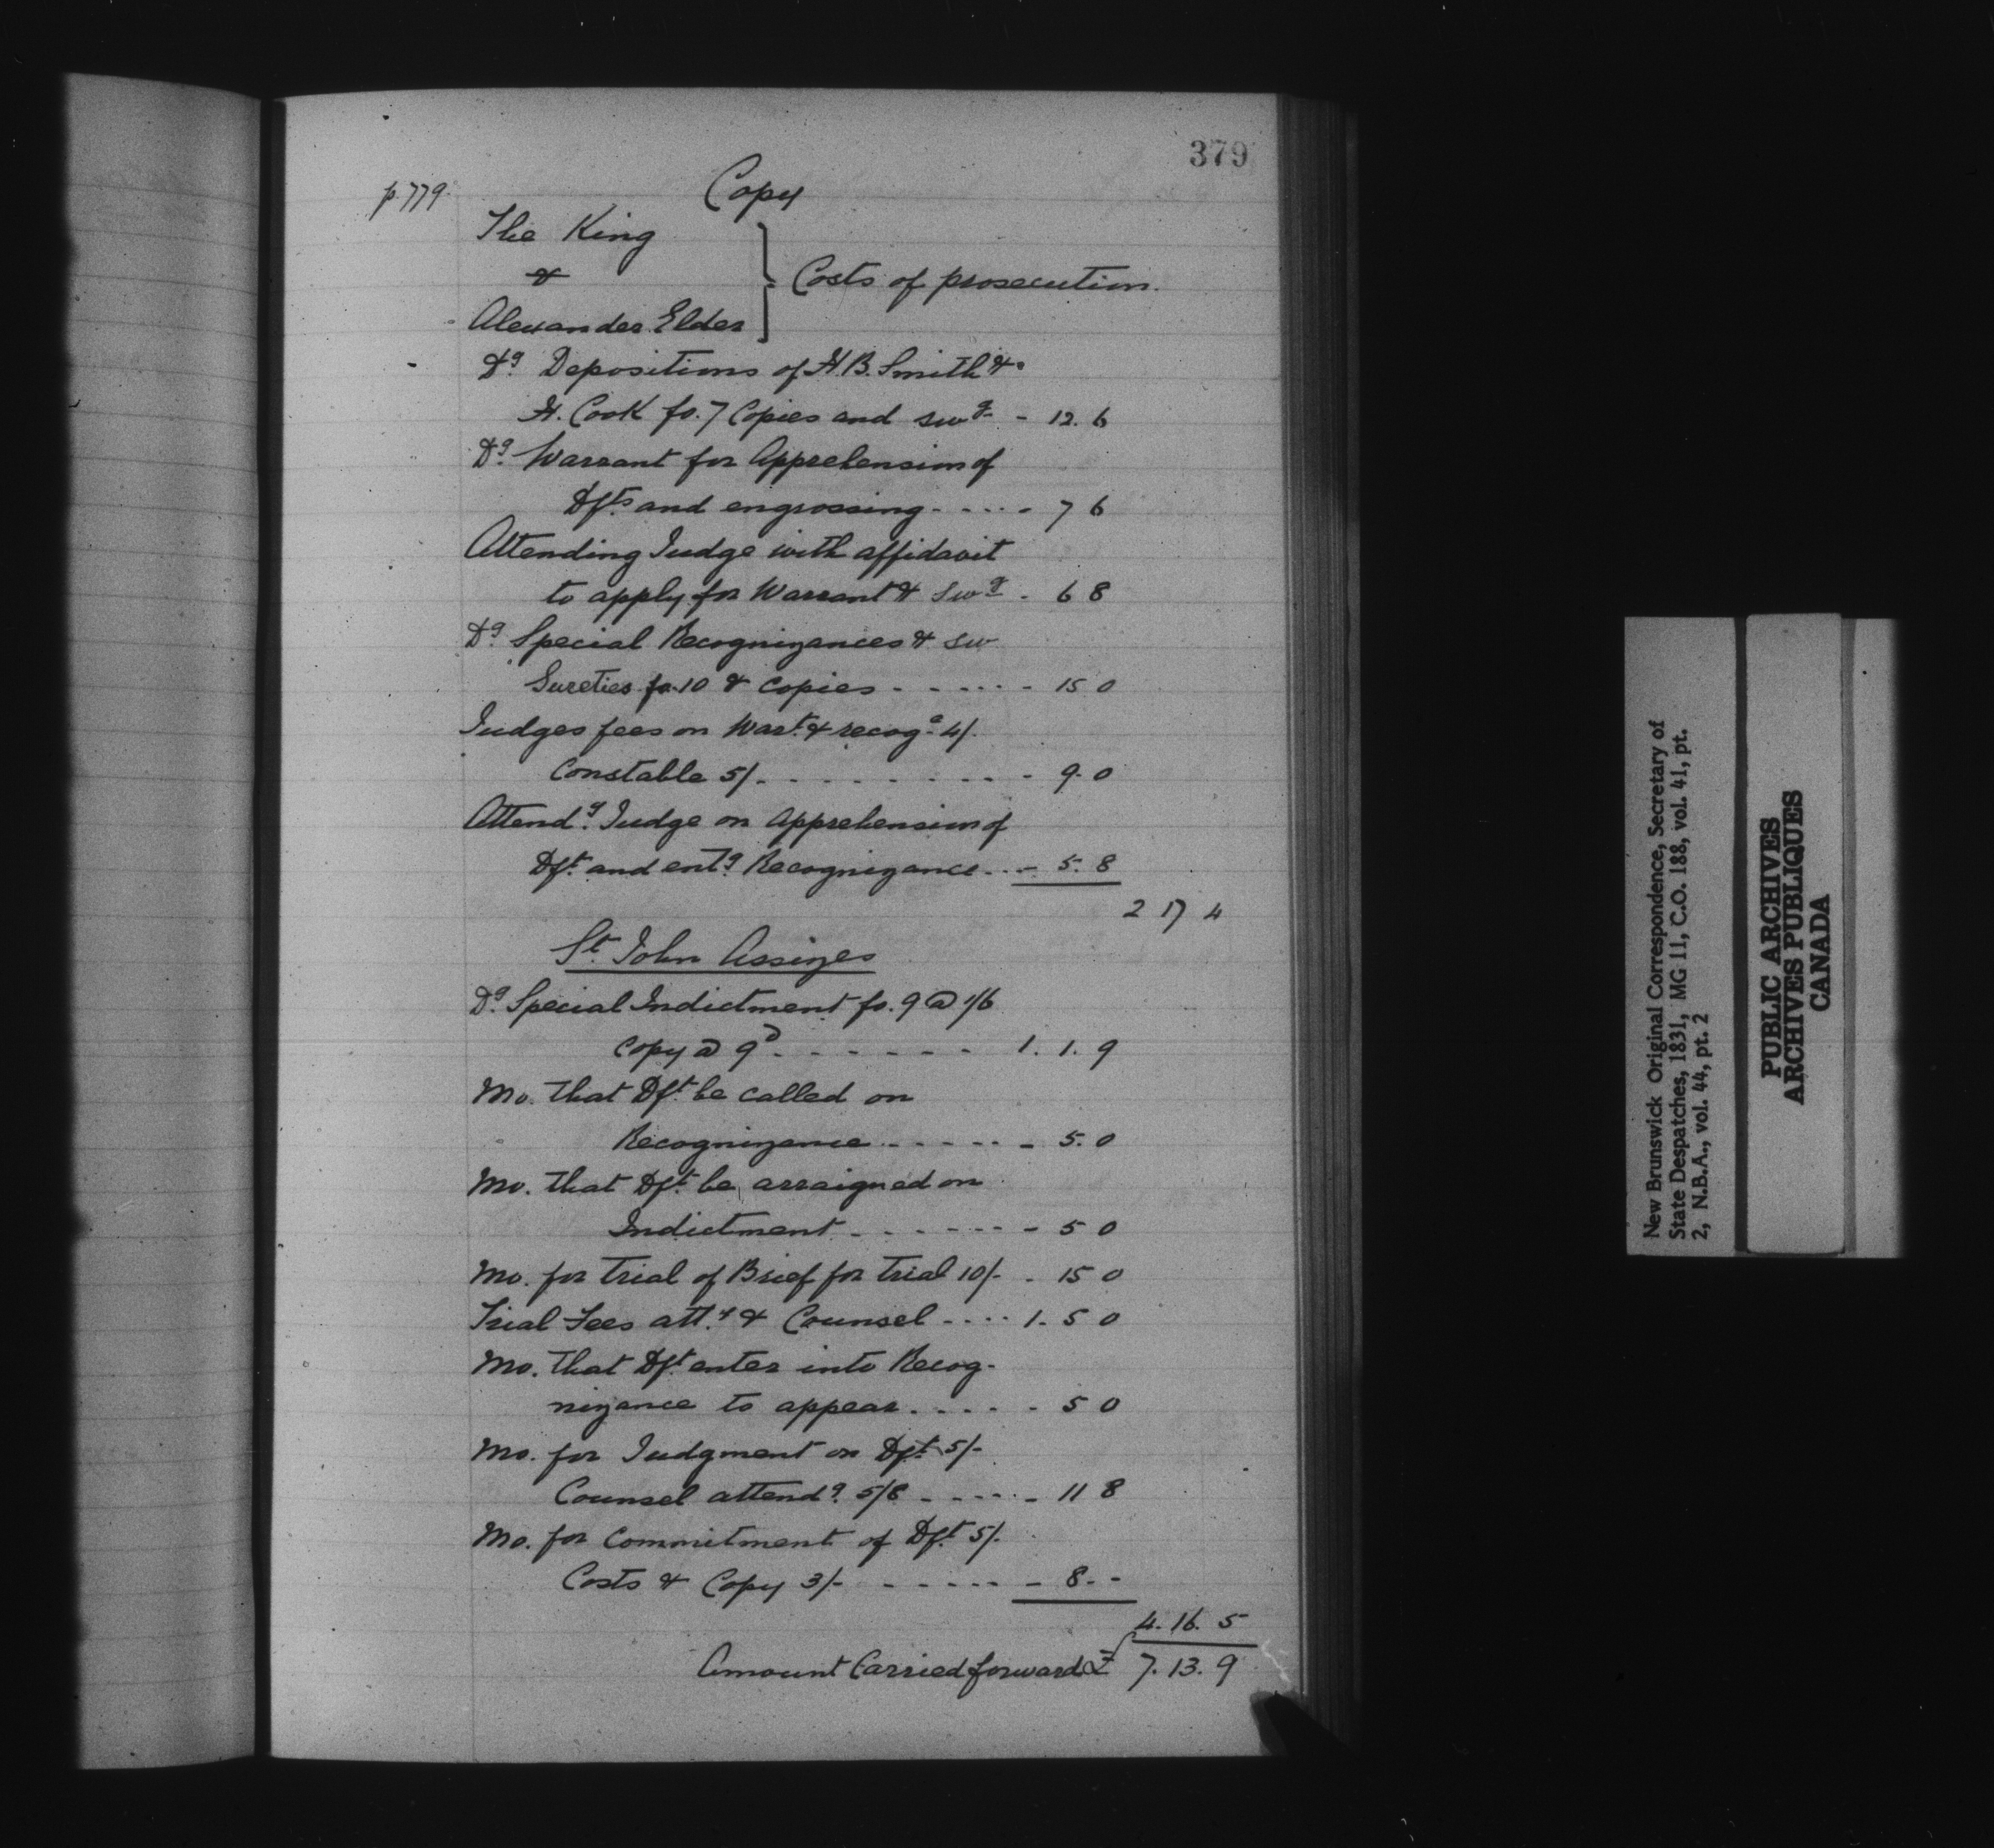 379
p. 779.
Copy
The King
&
Alexander Elder
Costs of prosecution.
Dg Depositions of H. B. Smith &
H. Cook fo. 7 Copies and swg - 12. 6
Dg Warrant for Apprehension of
Dfts and engrossing - - - - - 7 6
Attending Judge with affidavit
to apply for Warrant & swg - 6 8
Dg Special Recognizances & sw
Sureties fo. 10 & copies - - - - - - 15 0
Judges fees on Wart. & recoge. 4/.
Constable 5/- - - - - - - - - - 9. 0
Attendg. Judge on apprehension of
Dft. and entg Recognizance - - - 5. 8
2 17 4
St. John Assizes
Dg Special Indictment fo. 9 @ 1/6
Copy @ 9D - - - - - - - 1. 1. 9
Mo. that Dft. be called on
Recognizance - - - - - - 5. 0
Mo. that Dft. be arraigned on
Indictment - - - - - - - 5 0
Mo. for trial of Brief for trial 10/- - 15 0
Trial Fees atty. & Counsel - - - - 1. 5 0
Mo. that Dft. enter into Recog-
nizance to appear - - - - - 5 0
Mo. for Judgment on Dft. 5/-
Counsel attendg. 5/8 - - - - - - 11 8
Mo. for Commitment of Dft. 5/.
Costs & Copy 3/- - - - - - - - 8. -
4. 16. 5
Amount Carried forward £ 7. 13. 9
New Brunswick Original Correspondence, Secretary of
State Despatches, 1831, MG 11, C.O. 188, vol. 41, pt.
2, N.B.A., vol. 44, pt. 2
PUBLIC ARCHIVES
ARCHIVES PUBLIQUES
CANADA